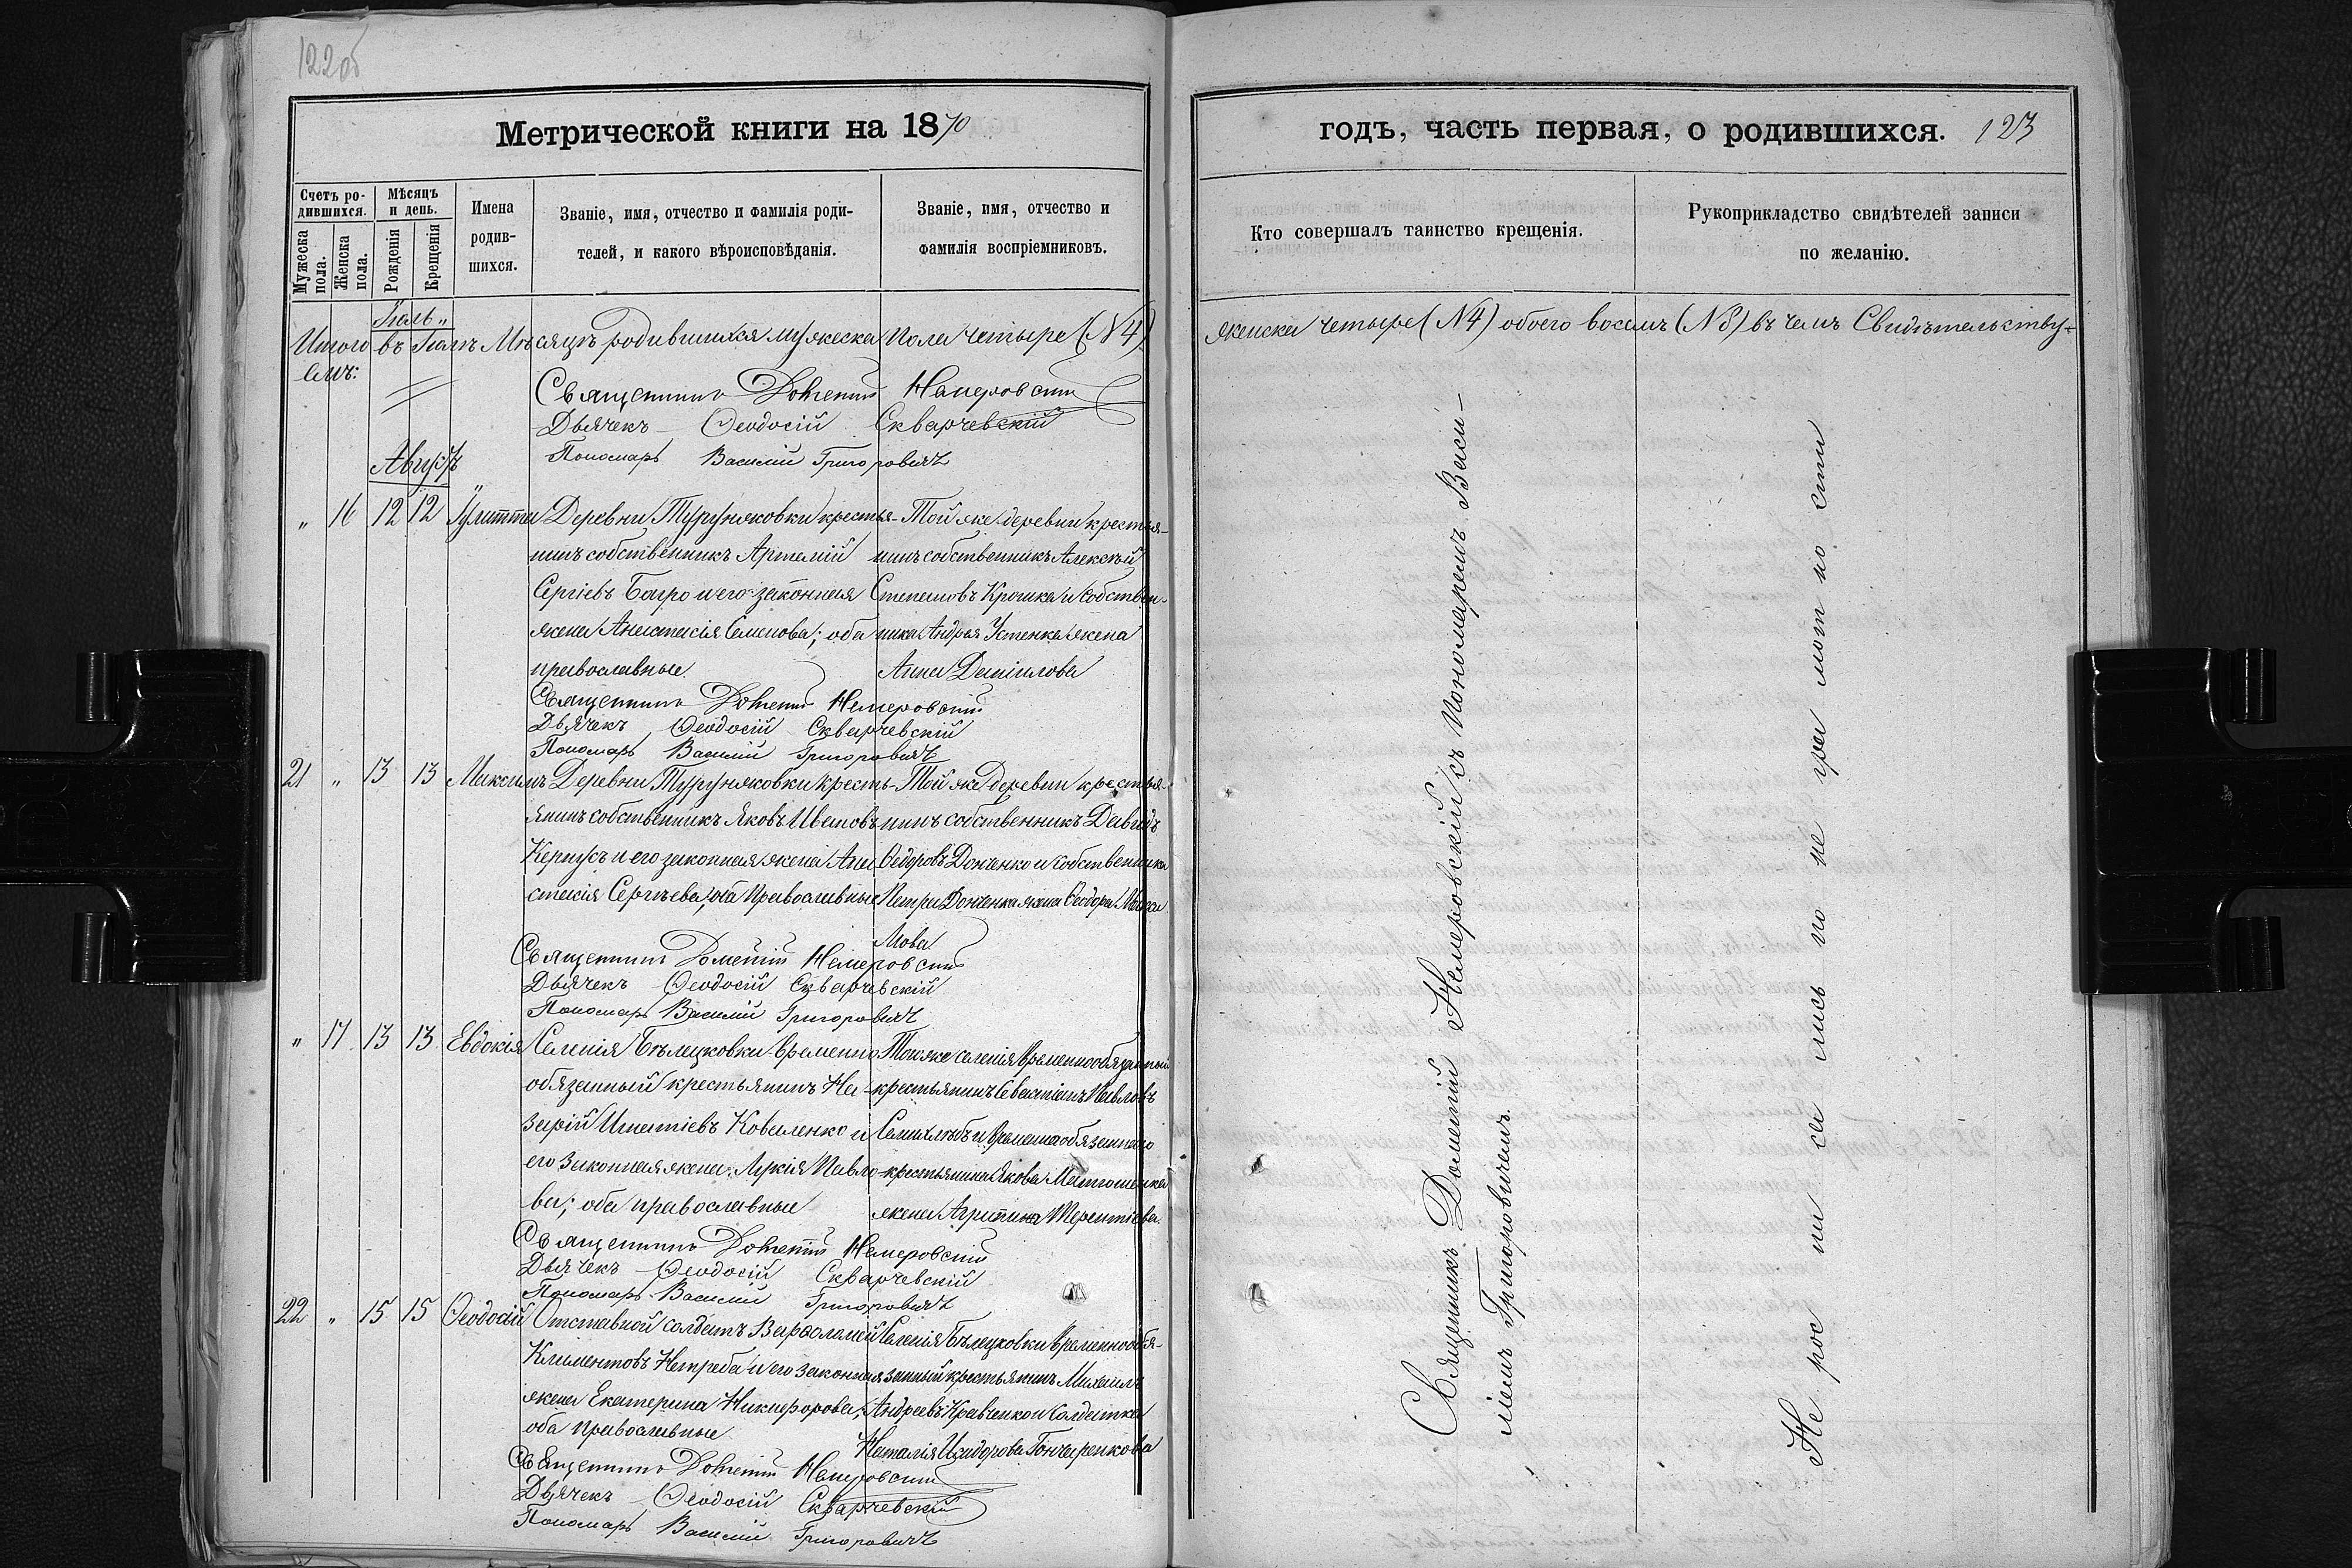 122об
Метрической книги на 1870
Счетъ родившихся.
Мужеска пола.
Женска пола.
Мѣсяцъ и день.
Рожденія
Крещенія
Имена родившихся.
Званіе, имя, отчество и фамилія родителей, и какого вѣроисповѣданія.
Званіе, имя, отчество и фамилія воспріемниковъ.
Итого въ Іюлѣ Мѣсяцѣ родившихся мужеска пола четыре (№ 4)
емъ:
Священникъ Дометій Немеровскій
Дьячекъ Ѳеодосій Скварчевскій
Пономарь Василій Григоровичъ
Августъ
" 16 12 12 Іулитта Деревни Туруняковки крестья- Той же деревни крестья-
нинъ собственникъ Артемій нинъ собственникъ Алексѣй
Сергіевъ Багро и его законная Степановъ Крошка и собствен-
жена Анастасія Семенова; оба ника Андрея Устенка жена
православные. Анна Даніилова
Священникъ Дометій Немеровскій
Дьячекъ Ѳеодосій Скварчевскій
Пономарь Василій Григоровичъ
21 " 13 13 Максимъ Деревни Туруняковки кресть- Той же деревни крестья-
янинъ собственникъ Яковъ Ивановъ нинъ собственникъ Давидъ
и его законная жена Ана Ѳедоровъ Донченко и собственника
стасія Сергѣева; оба православные Петра Донченка жена Ѳеодора
мова
Священникъ Дометій Немеровскій
Дьячекъ Ѳеодосій Скварчевскій
Пономарь Василій Григоровичъ
" 17 13 13 Евдокія Селенія Бѣлецковки временно Того же селенія временнообязанный
обязанный крестьянинъ На- крестьянинъ Севастіанъ Павловъ
зарій Игнатіевъ Коваленко и и временнообязаннаго
его законная жена Лукія Павло- крестьянина Якова Матюшенка
ва; оба православные жена Агрипина Терентіева.
Священникъ Дометій Немеровскій
Дьячекъ Ѳеодосій Скварчевскій
Пономарь Василій Григоровичъ
22 " 15 15 Ѳеодосій Отставной солдатъ Варфоломей Селенія Бѣлецковки временнообя-
Климентовъ Нетреба и его законная занный крестьянинъ Михаилъ
жена Екатерина Никифорова; Андреевъ Кравченко и солдатка
оба православные Наталія Исидорова Гончаренкова
Священникъ Дометій Немеровскій
Дьячекъ Ѳеодосій Скварчевскій
Пономарь Василій Григоровичъ
годъ, часть первая, о родившихся. 123
Кто совершалъ таинство крещенія.
Рукоприкладство свидѣтелей записи по желанію.
женска четыре (№ 4) обоего восемь (№ 8) въ чемъ Свидѣтельству-
Священникъ Дометій Немеровскій съ Пономаремъ Васи-
ліемъ Григоровичемъ.
Не рос пи са лись по не гра мот но сти